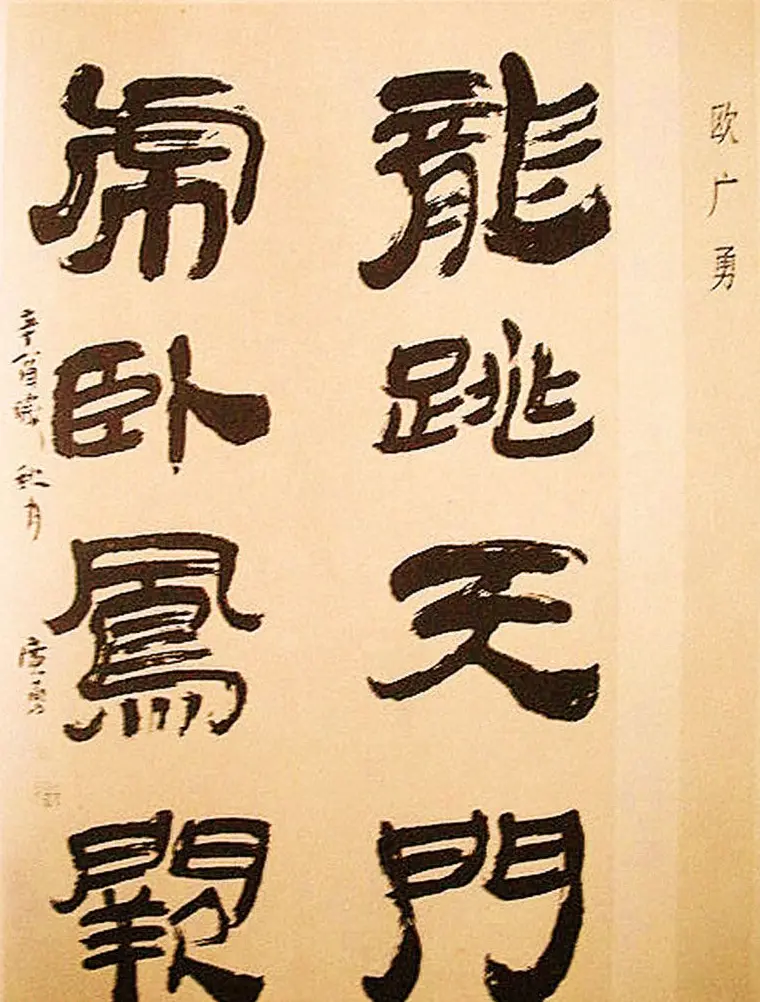 欧广勇
龍跳天門
虎卧鳳闕
辛酉 秋月 廣勇